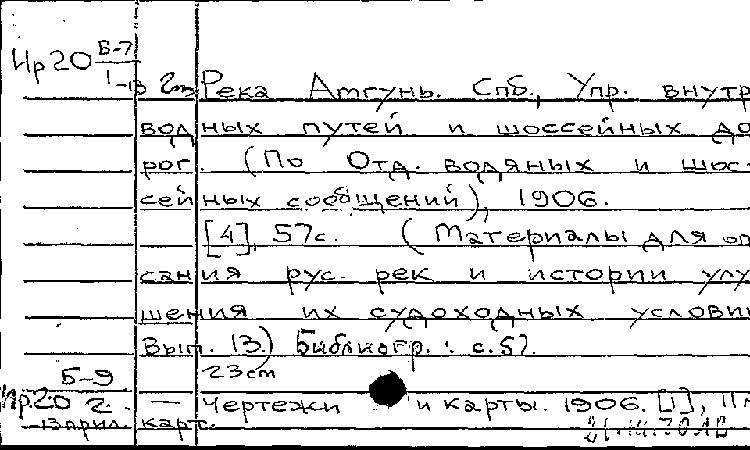 Ир20 Б-7
1-13 2т Река Амгунь. Спб., Упр. внутр
водных путей и шоссейных до
рог. (По Отд. водяных и шос-
сейных сообщений), 1906.
[4], 57с. (Материалы для оп
сания рус. рек и истории улу
шения их судоходных услови
Вып. 13.) Библиогр.: с.57.
23см
Б-9
Ир.20 2. — Чертежи и карты. 1906. [1], 11
13прил. карт.